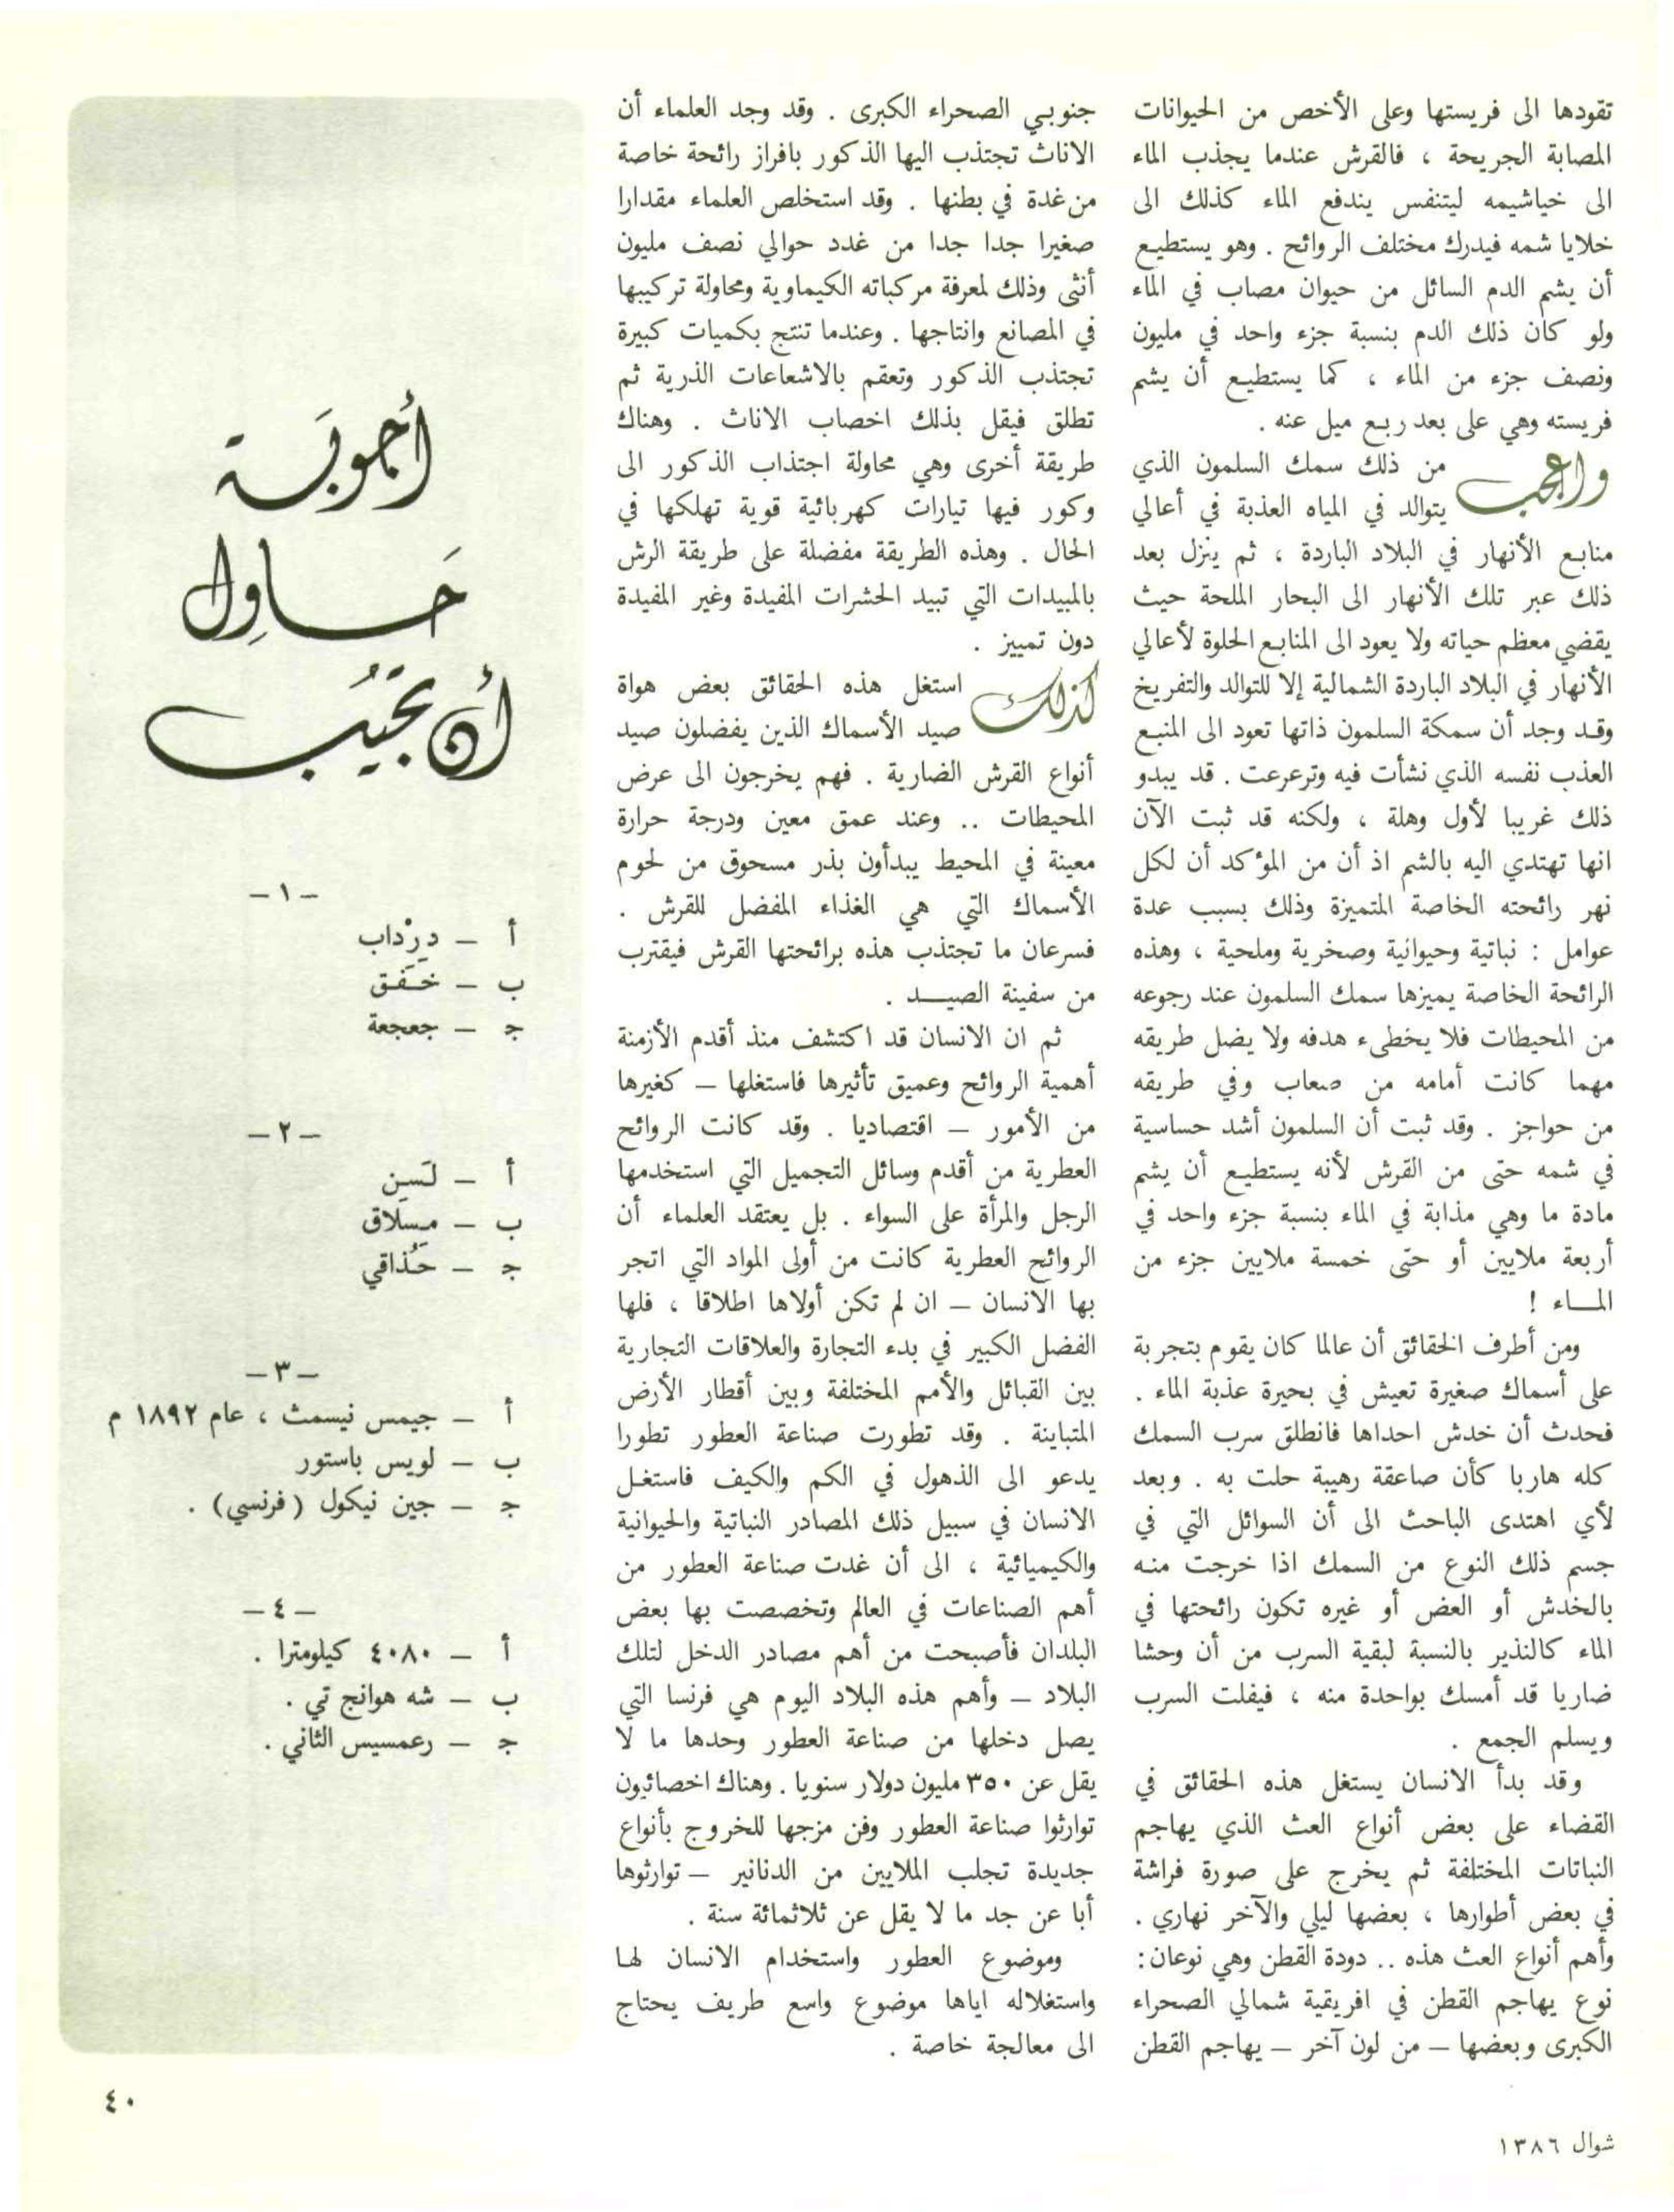 تقودها الى فريستها وعلى الأخص من الحيوانات
المصابة الجريحة ، فالقرش عندما يجذب الماء
الى خياشيمه ليتنفس يندفع الماء كذلك الى
خلايا شمه فيدرك مختلف الروائح . وهو يستطيع
أن يشم الدم السائل من حيوان مصاب في الماء
ولو كان ذلك الدم بنسبة جزء واحد في مليون
ونصف جزء من الماء ، كما يستطيع أن يشم
فريسته وهي على بعد ربع ميل عنه .
واعجب من ذلك سمك السلمون الذي
يتوالد في المياه العذبة في أعالي
منابع الأنهار في البلاد الباردة ، ثم ينزل بعد
ذلك عبر تلك الأنهار الى البحار الملحة حيث
يقضي معظم حياته ولا يعود الى المنابع الحلوة لأعالي
الأنهار في البلاد الباردة الشمالية إلا للتوالد والتفريخ
وقد وجد أن سمكة السلمون ذاتها تعود الى المنبع
العذب نفسه الذي نشأت فيه وترعرعت . قد يبدو
ذلك غريبا لأول وهلة ، ولكنه قد ثبت الآن
انها تهتدي اليه بالشم اذ أن من المؤكد أن لكل
نهر رائحته الخاصة المتميزة وذلك بسبب عدة
عوامل : نباتية وحيوانية وصخرية وملحية ، وهذه
الرائحة الخاصة يميزها سمك السلمون عند رجوعه
من المحيطات فلا يخطىء هدفه ولا يضل طريقه
مهما كانت أمامه من صعاب وفي طريقه
من حواجز . وقد ثبت أن السلمون أشد حساسية
في شمه حتى من القرش لأنه يستطيع أن يشم
مادة ما وهي مذابة في الماء بنسبة جزء واحد في
أربعة ملايين أو حتى خمسة ملايين جزء من
المـاء !
ومن أطرف الحقائق أن عالما كان يقوم بتجربة
على أسماك صغيرة تعيش في بحيرة عذبة الماء .
فحدث أن خدش احداها فانطلق سرب السمك
كله هاربا كأن صاعقة رهيبة حلت به . وبعد
لأي اهتدى الباحث الى أن السوائل التي في
جسم ذلك النوع من السمك اذا خرجت منه
بالخدش أو العض أو غيره تكون رائحتها في
الماء كالنذير بالنسبة لبقية السرب من أن وحشا
ضاريا قد أمسك بواحدة منه ، فيفلت السرب
ويسلم الجمع .
وقد بدأ الانسان يستغل هذه الحقائق في
القضاء على بعض أنواع العث الذي يهاجم
النباتات المختلفة ثم يخرج على صورة فراشة
في بعض أطوارها ، بعضها ليلي والآخر نهاري .
وأهم أنواع العث هذه .. دودة القطن وهي نوعان:
نوع يهاجم القطن في افريقية شمالي الصحراء
الكبرى وبعضها – من لون آخر – يهاجم القطن
جنوبي الصحراء الكبرى . وقد وجد العلماء أن
الاناث تجتذب اليها الذكور بافراز رائحة خاصة
من غدة في بطنها . وقد استخلص العلماء مقدارا
صغيرا جدا جدا من غدد حوالي نصف مليون
أنثى وذلك لمعرفة مركباته الكيماوية ومحاولة تركيبها
في المصانع وانتاجها . وعندما تنتج بكميات كبيرة
تجتذب الذكور وتعقم بالاشعاعات الذرية ثم
تطلق فيقل بذلك اخصاب الاناث . وهناك
طريقة أخرى وهي محاولة اجتذاب الذكور الى
وكور فيها تيارات كهربائية قوية تهلكها في
الحال . وهذه الطريقة مفضلة على طريقة الرش
بالمبيدات التي تبيد الحشرات المفيدة وغير المفيدة
دون تمييز .
كذلك استغل هذه الحقائق بعض هواة
صيد الأسماك الذين يفضلون صيد
أنواع القرش الضارية . فهم يخرجون الى عرض
المحيطات .. وعند عمق معين ودرجة حرارة
معينة في المحيط يبدأون بذر مسحوق من لحوم
الأسماك التي هي الغذاء المفضل للقرش .
فسرعان ما تجتذب هذه برائحتها القرش فيقترب
من سفينة الصيـد .
ثم ان الانسان قد اكتشف منذ أقدم الأزمنة
أهمية الروائح وعميق تأثيرها فاستغلها – كغيرها
من الأمور – اقتصاديا . وقد كانت الروائح
العطرية من أقدم وسائل التجميل التي استخدمها
الرجل والمرأة على السواء . بل يعتقد العلماء أن
الروائح العطرية كانت من أولى المواد التي اتجر
بها الانسان – ان لم تكن أولاها اطلاقا ، فلها
الفضل الكبير في بدء التجارة والعلاقات التجارية
بين القبائل والأمم المختلفة وبين أقطار الأرض
المتباينة . وقد تطورت صناعة العطور تطورا
يدعو الى الذهول في الكم والكيف فاستغل
الانسان في سبيل ذلك المصادر النباتية والحيوانية
والكيميائية ، الى أن غدت صناعة العطور من
أهم الصناعات في العالم وتخصصت بها بعض
البلدان فأصبحت من أهم مصادر الدخل لتلك
البلاد – وأهم هذه البلاد اليوم هي فرنسا التي
يصل دخلها من صناعة العطور وحدها ما لا
يقل عن ٣٥٠ مليون دولار سنويا . وهناك اخصائيون
توارثوا صناعة العطور وفن مزجها للخروج بأنواع
جديدة تجلب الملايين من الدنانير – توارثوها
أبا عن جد ما لا يقل عن ثلاثمائة سنة .
وموضوع العطور واستخدام الانسان لها
واستغلاله اياها موضوع واسع طريف يحتاج
الى معالجة خاصة .
أجوبَة
حَاوِل
أن تجيُب
– ١ –
أ – دِرْداب
ب – خَفَق
ج – جعجعة
– ٢ –
أ – لَسِن
ب – مِسلاق
ج – حُذاقي
– ٣ –
أ – جيمس نيسمث ، عام ١٨٩٢ م
ب – لويس باستور
ج – جين نيكول ( فرنسي) .
– ٤ –
أ – ٤٠٨٠ كيلومترا .
ب – شه هوانج تي .
ج – رعمسيس الثاني .
٤٠
شوال ١٣٨٦